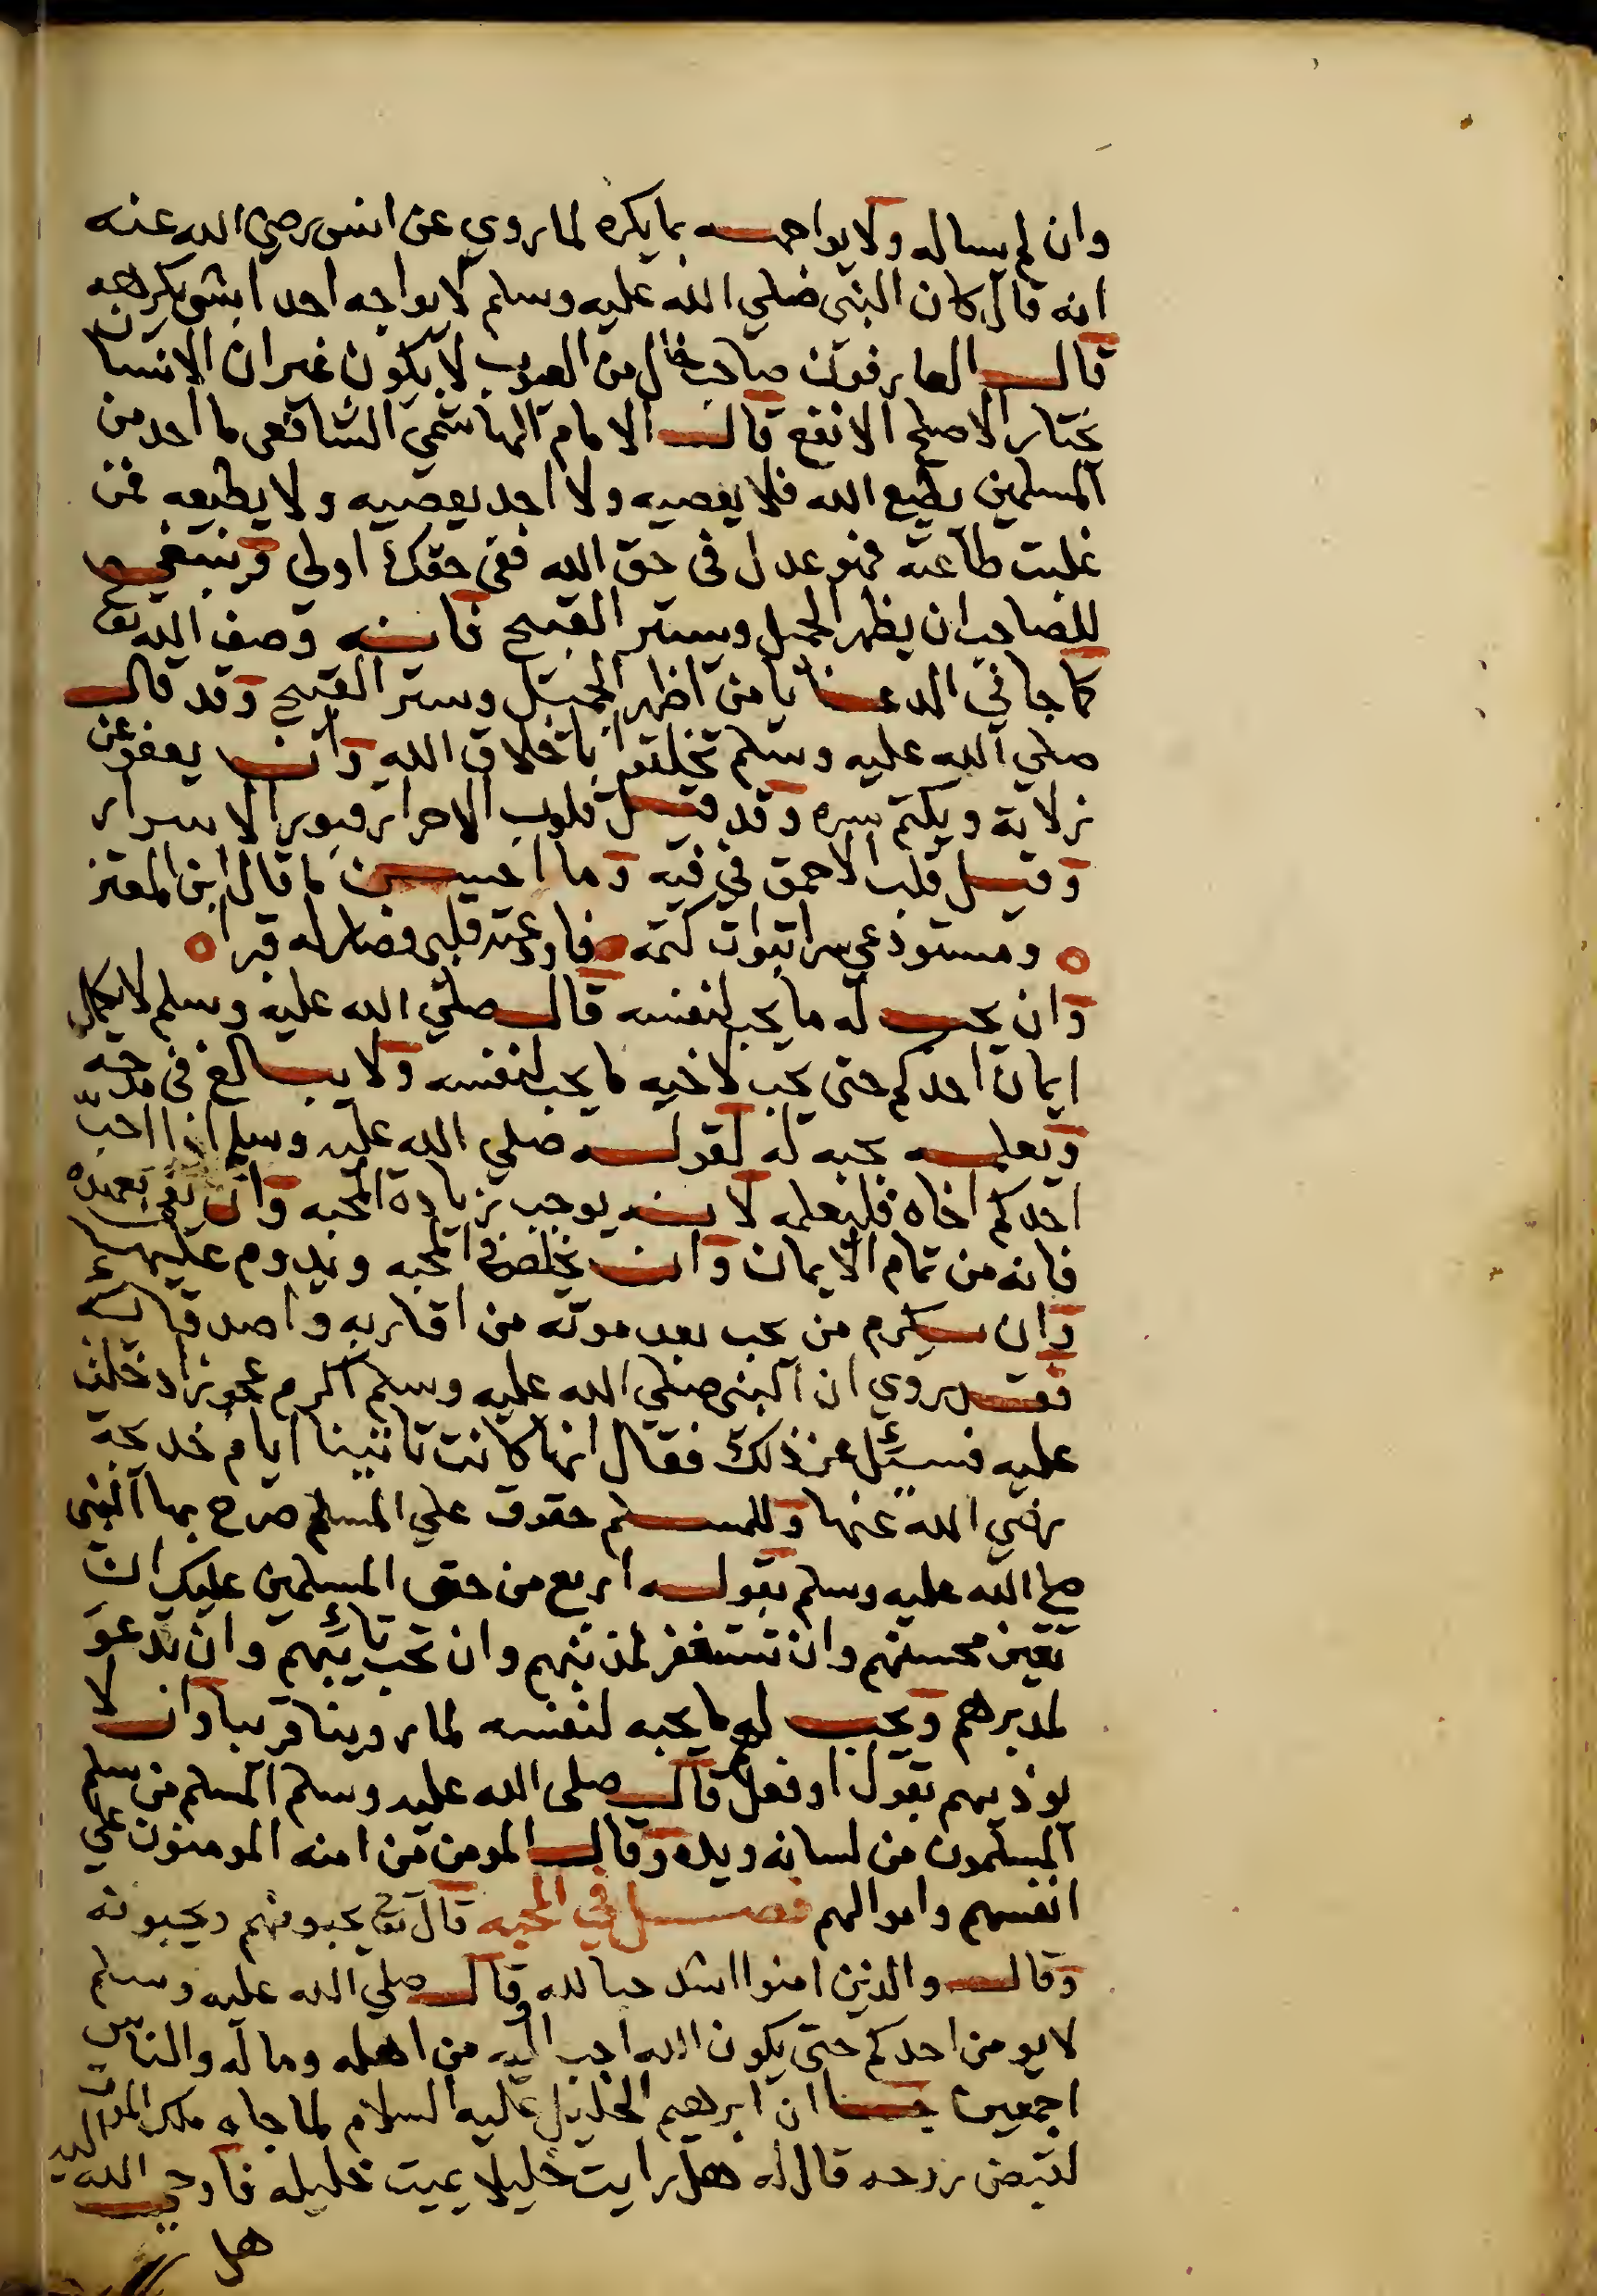 وان لم يساله ولا يواجهه بما يكره لما روي عن انس رضي الله عنه
انه قال كان النبي صلي الله عليه وسلم لا يواجه احدا بشي يكرهه
قال العارفون صاحب خال من العيوب لا يكون غير ان الانسان
يختار الاصلح الانفع قال الامام الهاشمي الشافعي ما احد من
المسلمين يطيع الله فلا يعصيه ولا احد يعصيه ولا يطيعه فمن
غلبت طاعته فهو عدل في حق الله ففي حقك اولي وينبغي
للصاحب ان يظهر الجميل ويستر القبيح فانه وصف الله تعالى
كما جا في الدعا يا من اظهر الجميل وستر القبيح وقد قال
صلي الله عليه وسلم تخلقوا باخلاق الله وان يعفو عن
زلاته ويكتم سره وقد قيل قلوب الاحرار قبور الاسرار
وقيل قلب الاحمق في فيه وما احسن ما قال ابن المعتز
ومستودعي سرا تبوات كتمه فاودعته قلبي فصار له قبرا
وان يحب له ما يحب لنفسه قال صلي الله عليه وسلم لا يكمل
ايمان احدكم حتى يحب لاخيه ما يحب لنفسه ولا يبالغ في مدحه
ويعلمه بحبه له لقوله صلي الله عليه وسلم اذا احب
احدكم اخاه فليعلمه لانه يوجب زيادة المحبه وان يفي بعهده
فانه من تمام الايمان وان يخلص في المحبه ويدوم عليها
وان يكرم من يحب بعد موته من اقاربه واصدقائه
فقد روي ان النبي صلي الله عليه وسلم اكرم عجوزا دخلت
عليه فسئل عن ذلك فقال انها كانت تاتينا ايام خديجة
رضي الله عنها وللمسلم حقوق علي المسلم صرح بها النبي
صلى الله عليه وسلم بقوله اربع من حق المسلمين عليك ان
تعين محسنهم وان تستغفر لمذنبهم وان تحب تائبهم وان تدعو
لمدبرهم ويحب لهم ما يحبه لنفسه لما روينا قريبا وان لا
يوذيهم بقول او فعل قال صلى الله عليه وسلم المسلم من سلم
المسلمون من لسانه ويده وقال المومن من امنه المومنون علي
انفسهم واموالهم فصل في المحبه قال تعالى يحبونهم ويحبونه
وقال والذين امنوا اشد حبا لله قال صلي الله عليه وسلم
لا يومن احدكم حتى يكون الله احب اليه من اهله وماله والناس
اجمعين جا ان ابرهيم الخليل عليه السلام لما جاه ملك الموت
لقبض روحه قال له هل رايت خليلا يميت خليله فاوحي الله اليه
هل